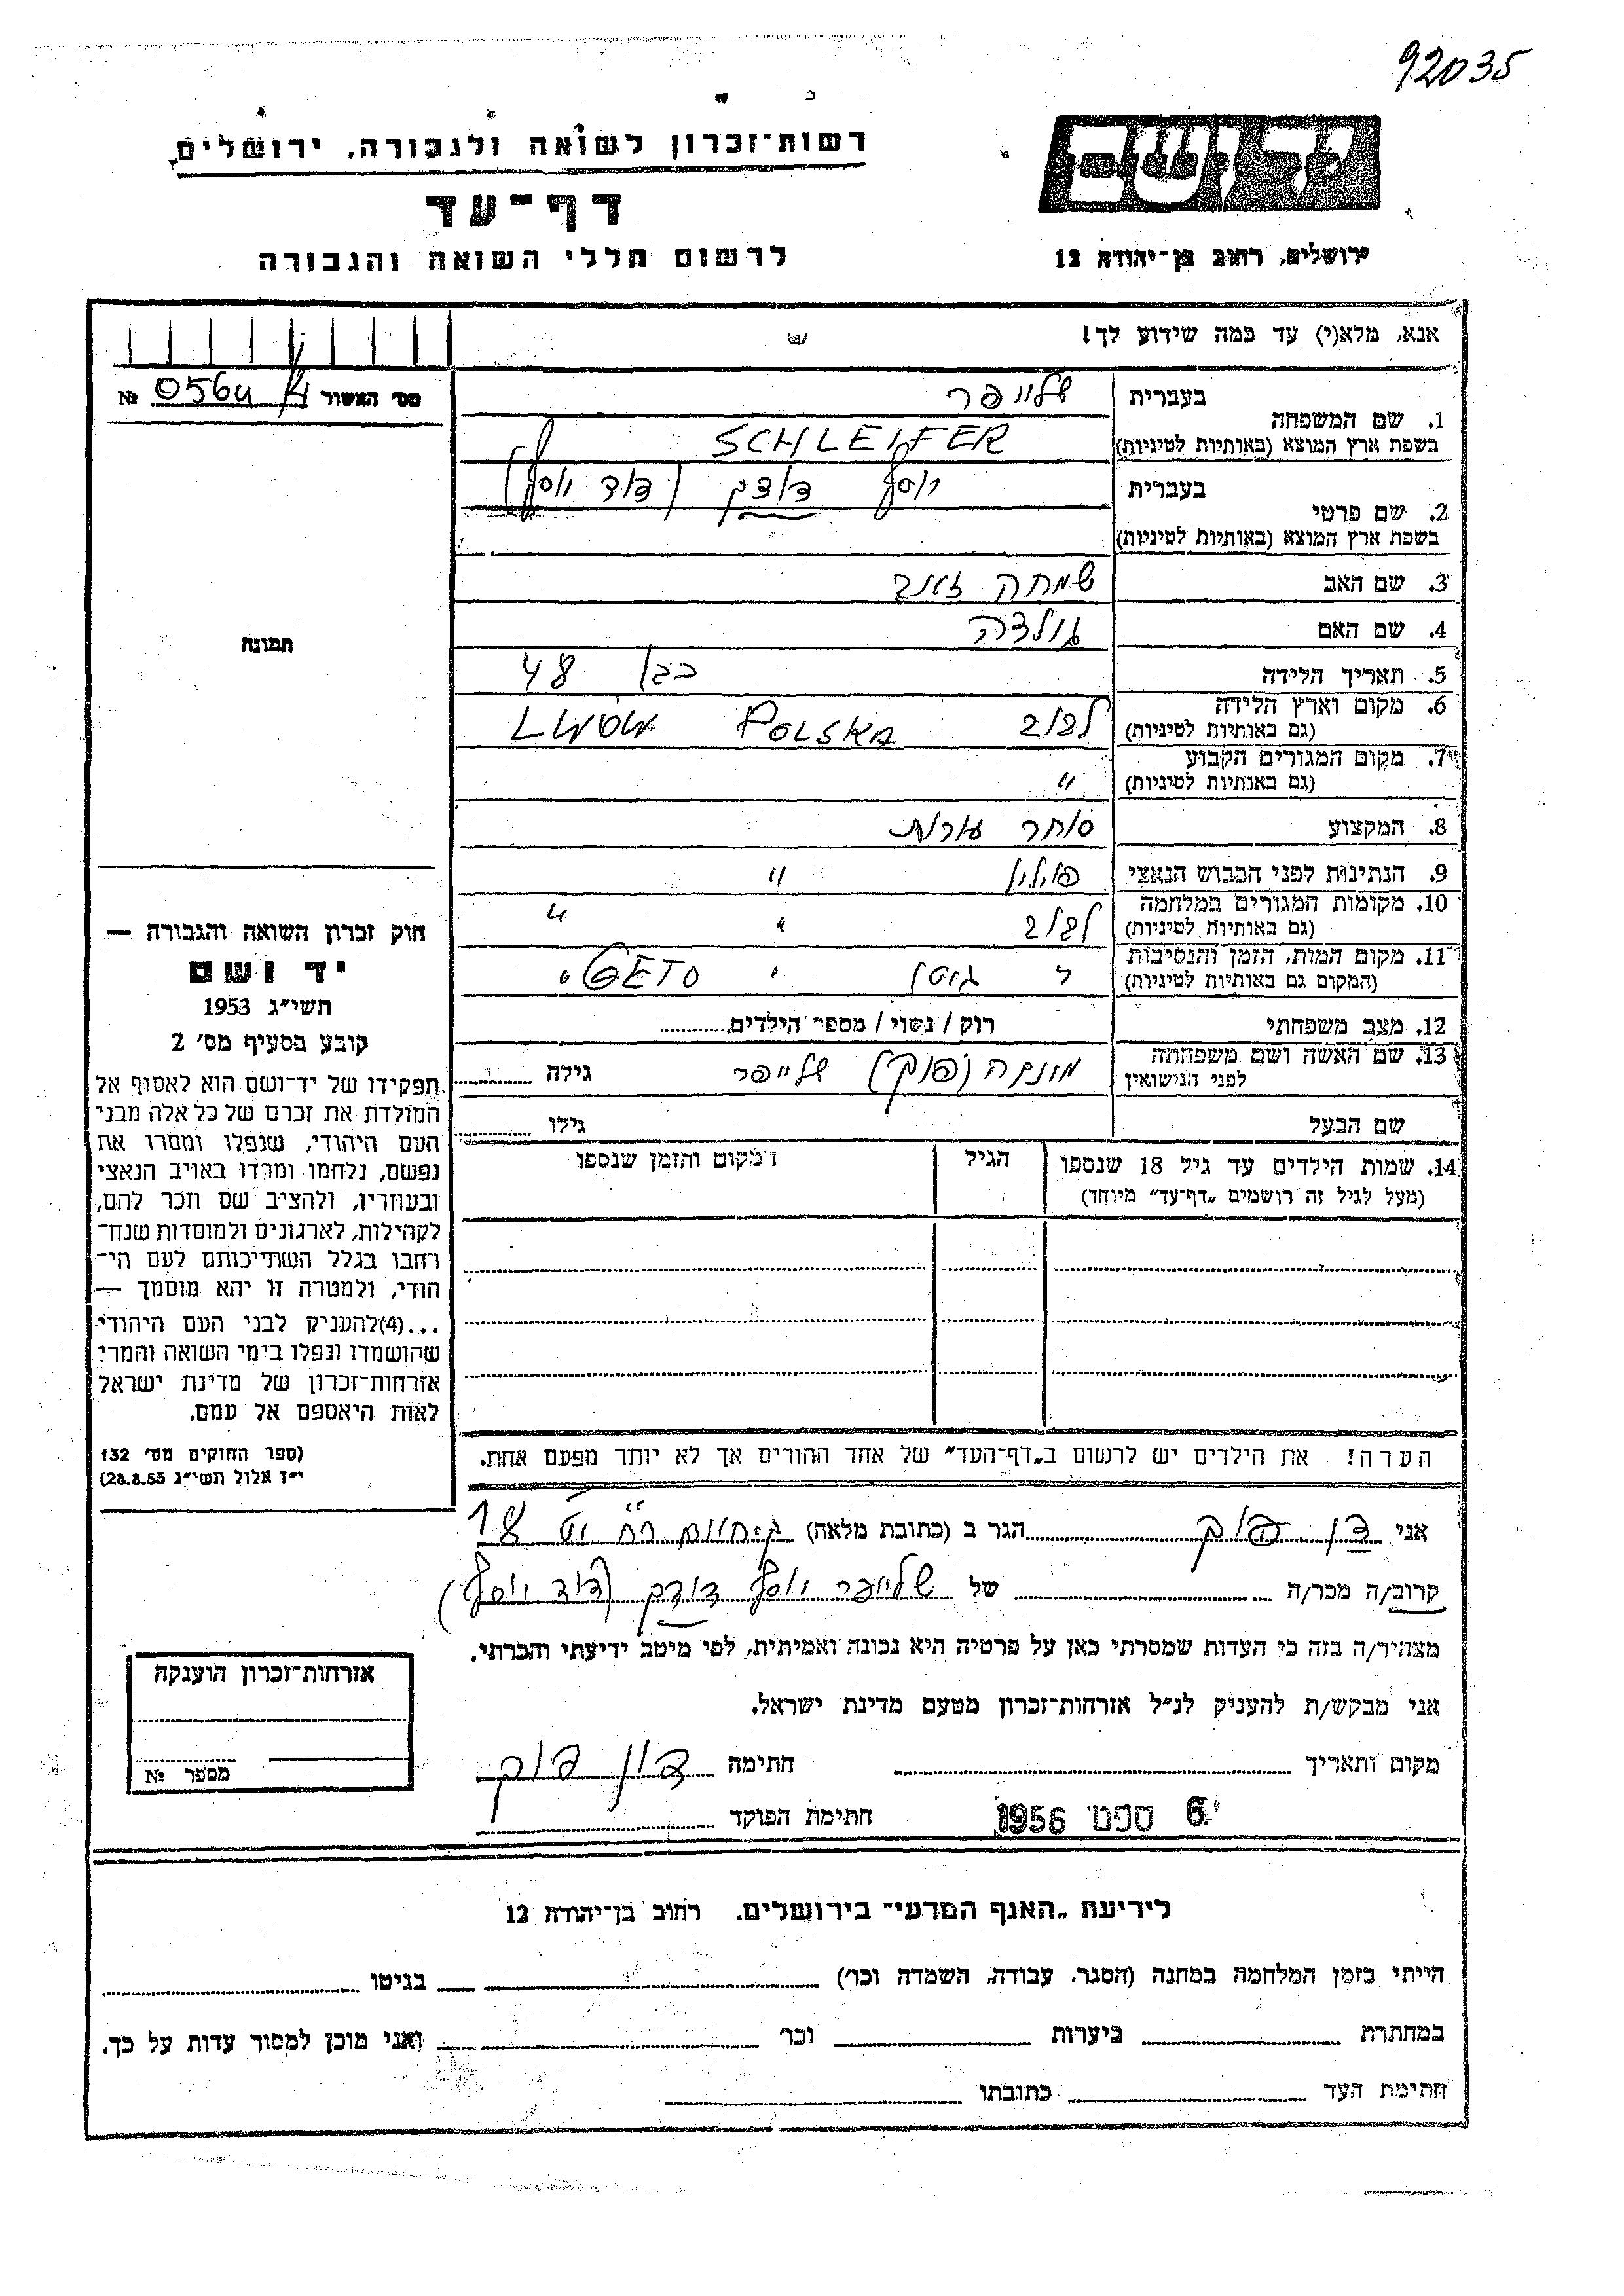 92035
יד ושם
רשות־זכרון לשואה ולגבורה, ירושלים
דף־עד
ירושלים, רחוב בן־יהודה 12
לרשום חללי השואה והגבורה
אנא, מלא(י) עד כמה שידוע לך!
מס׳ האשור № 0564
1. שם המשפחה
בעברית שלייפר
בשפת ארץ המוצא (באותיות לטיניות) SCHLEIFER
2. שם פרטי
בעברית יוסף דודק (דוד יוסף)
בשפת ארץ המוצא (באותיות לטיניות)
3. שם האב שמחה
4. שם האם גולדה
5. תאריך הלידה כבן 48
6. מקום וארץ הלידה
(גם באותיות לטיניות) לבוב POLSKA LWÓW
7. מקום המגורים הקבוע
(גם באותיות לטיניות) "
8. המקצוע סוחר עורות
9. הנתינות לפני הכבוש הנאצי פולין "
10. מקומות המגורים במלחמה
(גם באותיות לטיניות) לבוב " "
11. מקום המות, הזמן והנסיבות
(המקום גם באותיות לטיניות) גיטו GETO
12. מצב משפחתי רוק / נשוי / מספר הילדים
13. שם האשה ושם משפחתה
לפני הנישואין (פוק) שלייפר גילה
שם הבעל גילו
14. שמות הילדים עד גיל 18 שנספו
(מעל לגיל זה רושמים „דף־עד״ מיוחד)
הגיל
המקום והזמן שנספו
הערה! את הילדים יש לרשום ב„דף־העד״ של אחד ההורים אך לא יותר מפעם אחת.
תמונה
חוק זכרון השואה והגבורה —
יד ושם
תשי״ג 1953
קובע בסעיף מס׳ 2
תפקידו של יד־ושם הוא לאסוף אל
המולדת את זכרם של כל אלה מבני
העם היהודי, שנפלו ומסרו את
נפשם, נלחמו ומרדו באויב הנאצי
ובעוזריו, ולהציב שם וזכר להם,
לקהילות, לארגונים ולמוסדות שנח־
רחבו בגלל השתייכותם לעם הי־
הודי, ולמטרה זו יהא מוסמך —
...(4)להעניק לבני העם היהודי
שהושמדו ונפלו בימי השואה והמרי
אזרחות־זכרון של מדינת ישראל
לאות היאספם אל עמם.
(ספר החוקים מס׳ 132
י״ז אלול תשי״ג 28.8.53)
אני דן פוק הגר ב (כתובת מלאה) 18
קרוב/ה מכר/ה של שלייפר יוסף דודק (דוד יוסף)
מצהיר/ה בזה כי העדות שמסרתי כאן על פרטיה היא נכונה ואמיתית, לפי מיטב ידיעתי והכרתי.
אני מבקש/ת להעניק לנ״ל אזרחות־זכרון מטעם מדינת ישראל.
מקום ותאריך חתימה דן פוק
6 ספט 1956 חתימת הפוקד
אזרחות־זכרון הוענקה
מספר №
לידיעת „האגף המדעי״ בירושלים. רחוב בן־יהודה 12
הייתי בזמן המלחמה במחנה (הסגר, עבודה, השמדה וכו׳) בגיטו
במחתרת ביערות וכו׳ ואני מוכן למסור עדות על כך.
חתימת העד כתובתו